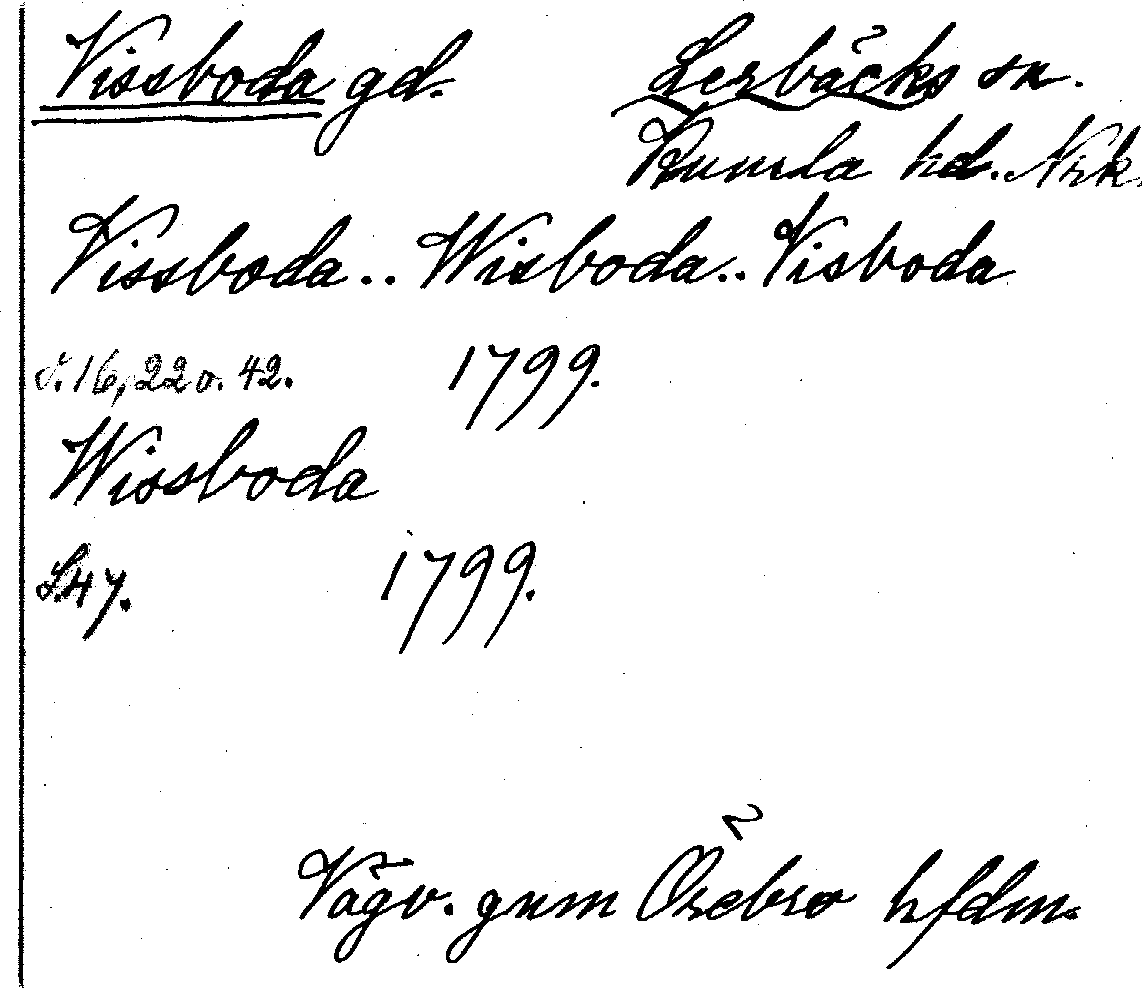 Vissboda gd. Lerbäcks sn.
Kumla hd. Nrk.
Vissboda.. Wisboda.. Visboda
S. 16, 22 o. 42. 1799.
Wissboda
S. 47. 1799.
Vägv. gnm Örebro hfdm.